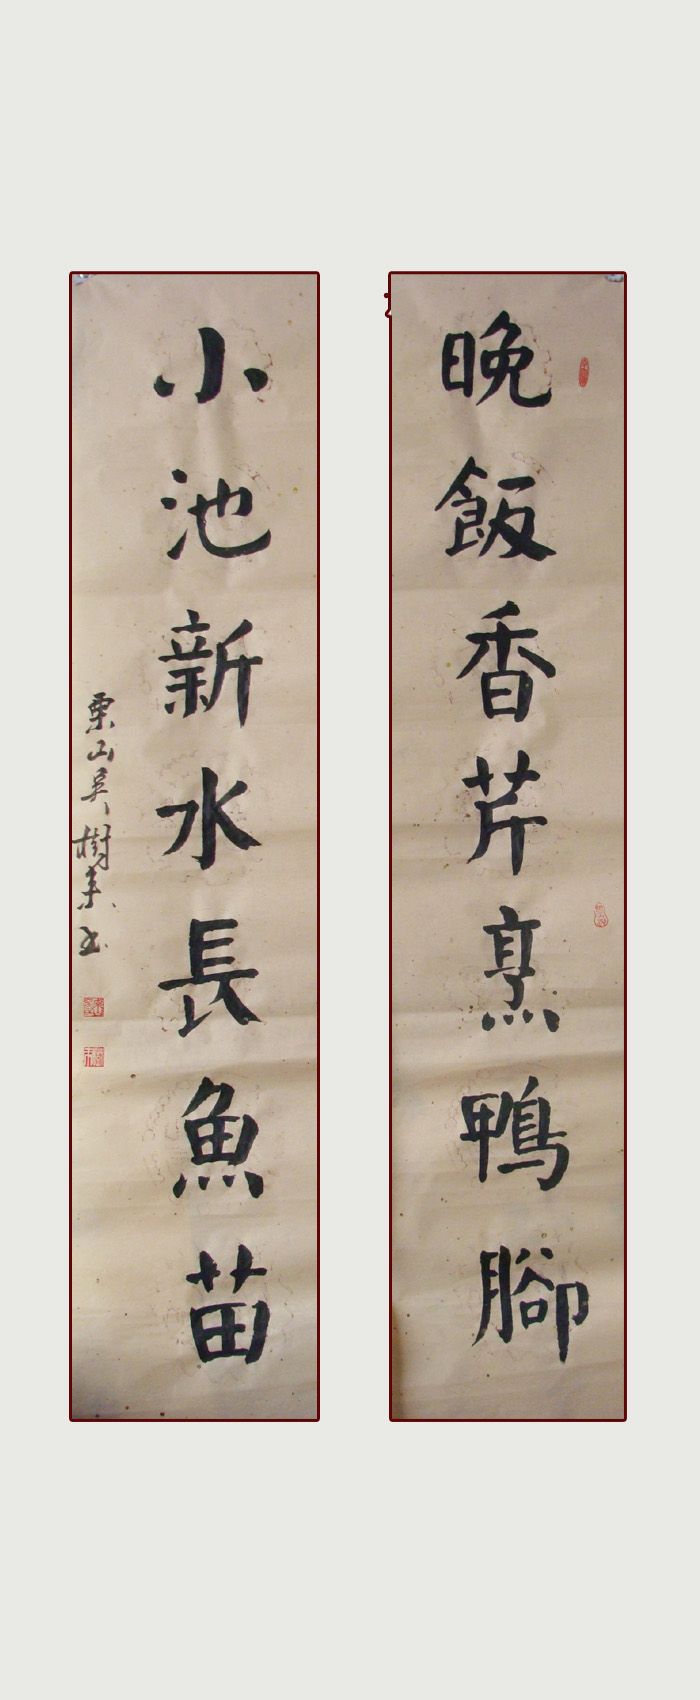 晚飯香芹烹鴨腳
小池新水長魚苗
栗山吳樹未书